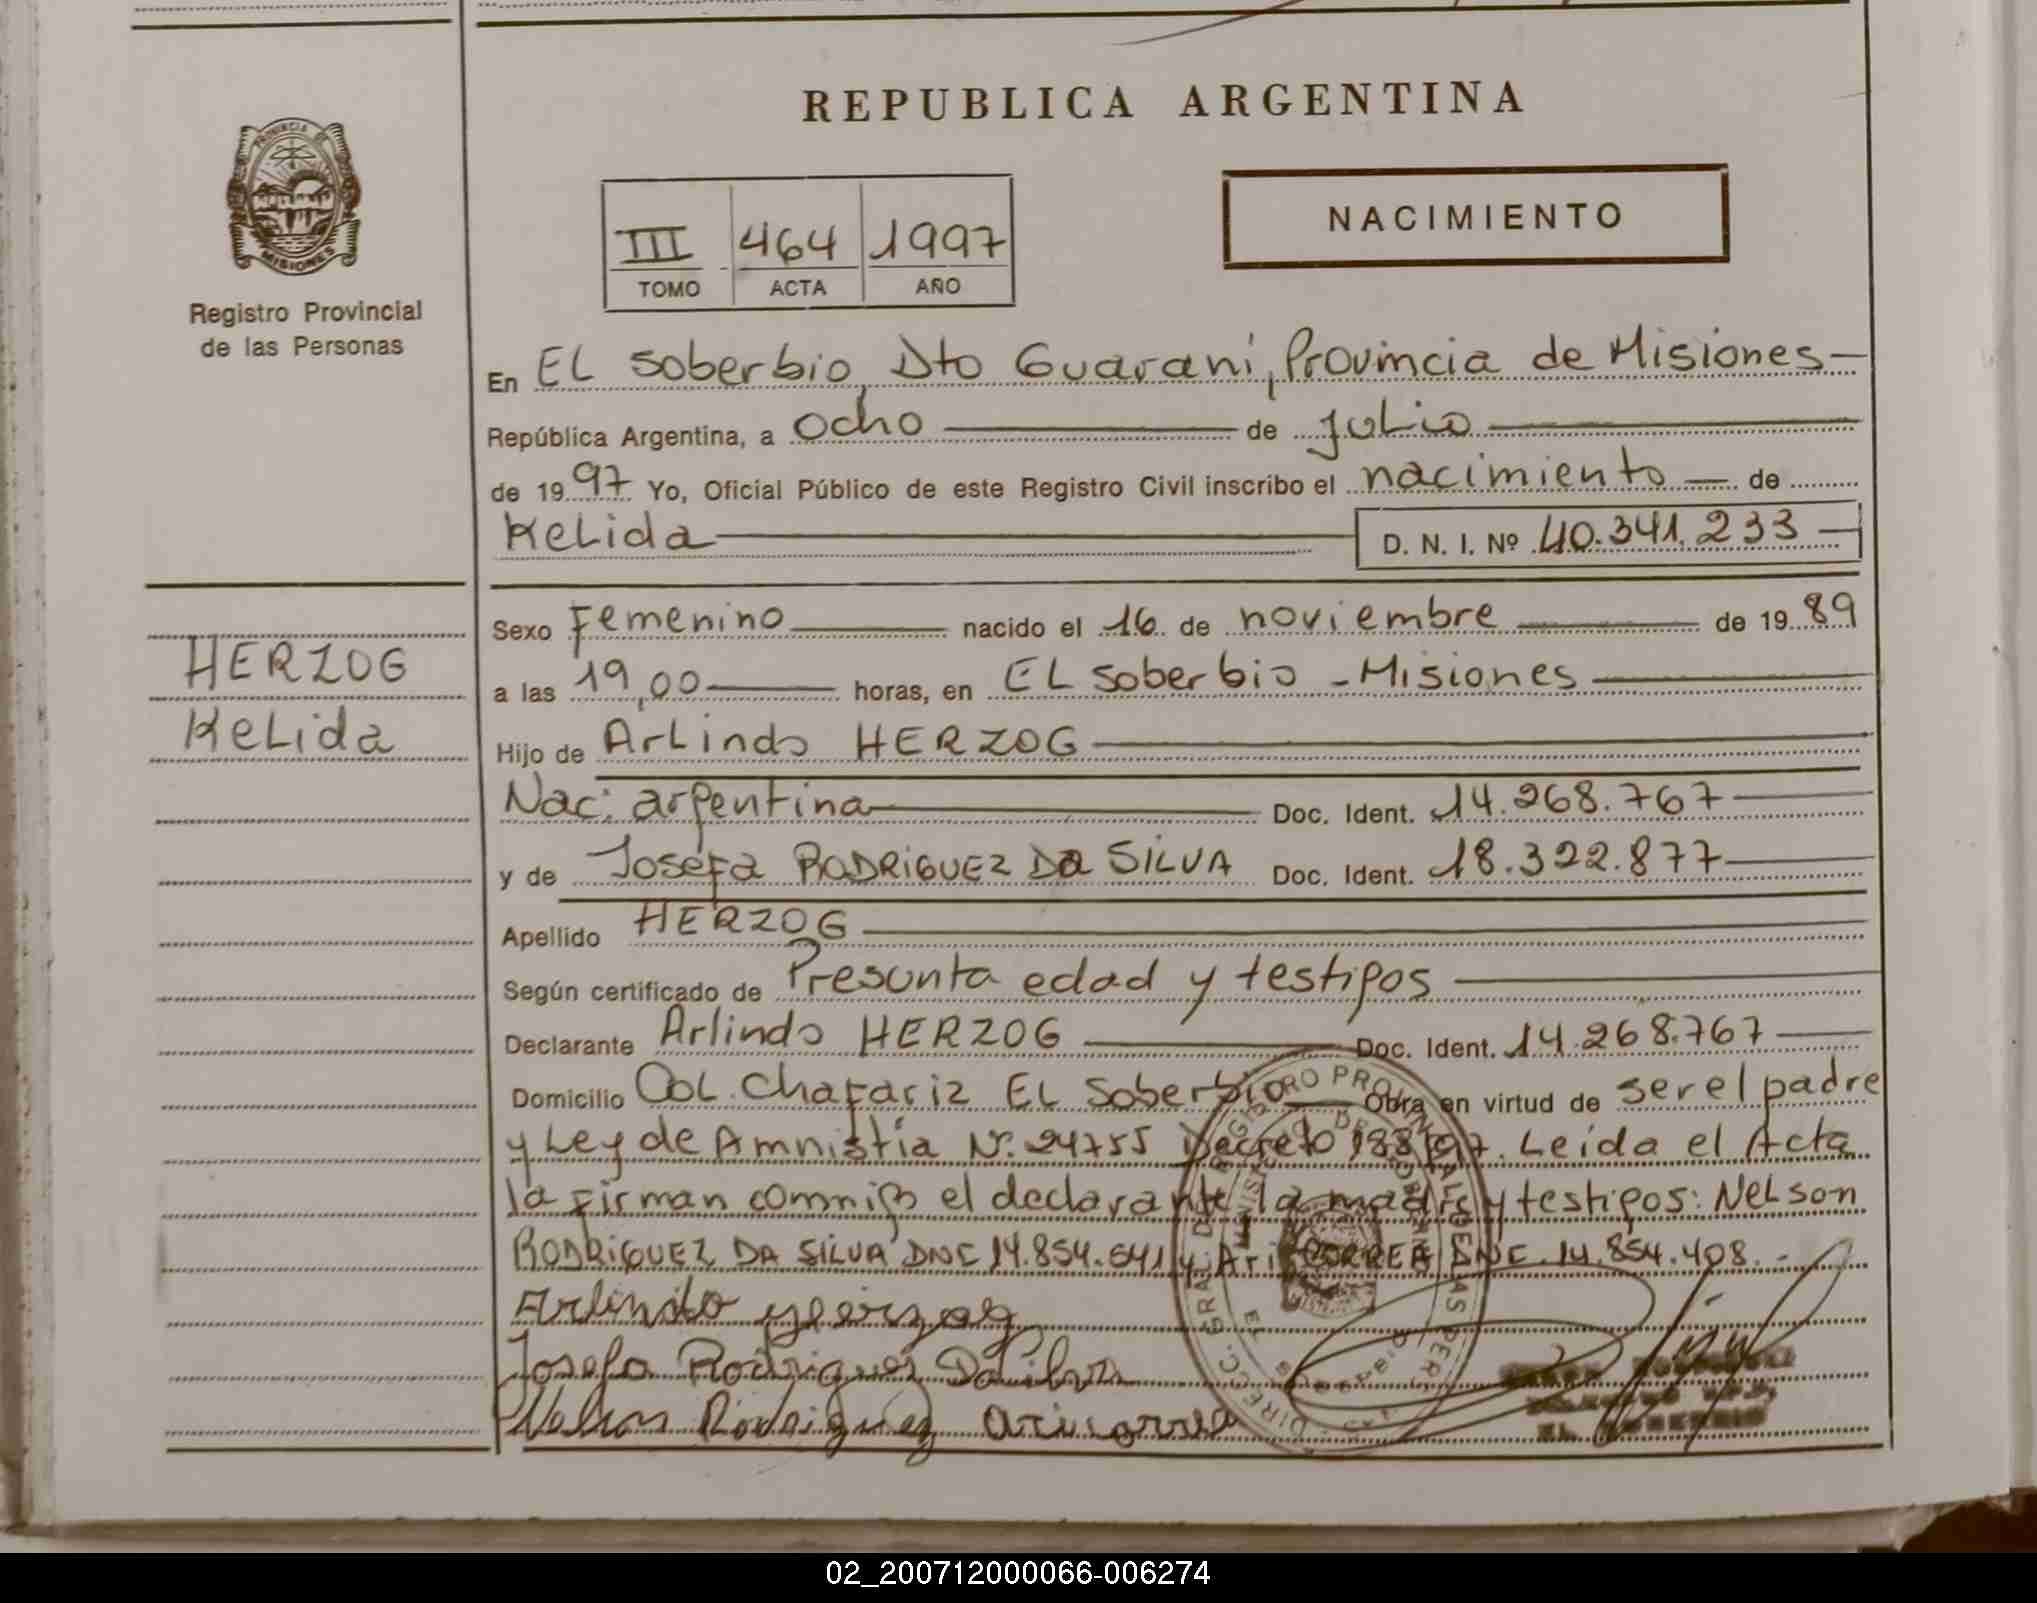 REPUBLICA ARGENTINA
PROVINCIA DE
MISIONES
Registro Provincial
de las Personas
III 464 1997
TOMO ACTA AÑO
NACIMIENTO
En EL Soberbio Dto Guarani, Provincia de Misiones
República Argentina, a ocho de julio
de 1997 Yo, Oficial Público de este Registro Civil inscribo el nacimiento de
KeLida D. N. I. Nº 40.341.233
Sexo Femenino nacido el 16 de noviembre de 1989
HERZOG
a las 19,00 horas, en EL Soberbio - Misiones
KeLida
Hijo de ArLindo HERZOG
Nac: argentina Doc. Ident. 14.268.767
y de Josefa RODRIGUEZ Da SILVA Doc. Ident. 18.322.877
Apellido HERZOG
Según certificado de Presunta edad y testigos
Declarante Arlindo HERZOG Doc. Ident. 14.268.767
Domicilio Col. Chafariz EL Soberbio Obra en virtud de ser el padre
y Ley de Amnistía Nº 24755 Decreto 188/97. Leída el Acta
la firman conmigo el declarante la madre y testigos: NeLson
RODRIGUEZ DA SILVA DNI 14.854.641 y Ari CORREA DNI 14.854.408.-
Arlindo Herzog
Josefa Rodrigues Da Silva
Nelson Rodriguez Ari correa
EL SOBERBIO
02_200712000066-006274